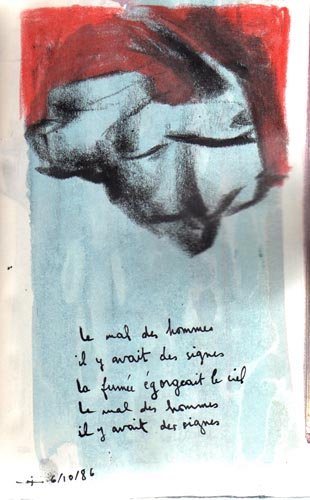 le mal des hommes
il y avait des signes
la fumée égorgeait le ciel
le mal des hommes
il y avait des signes
6/10/86